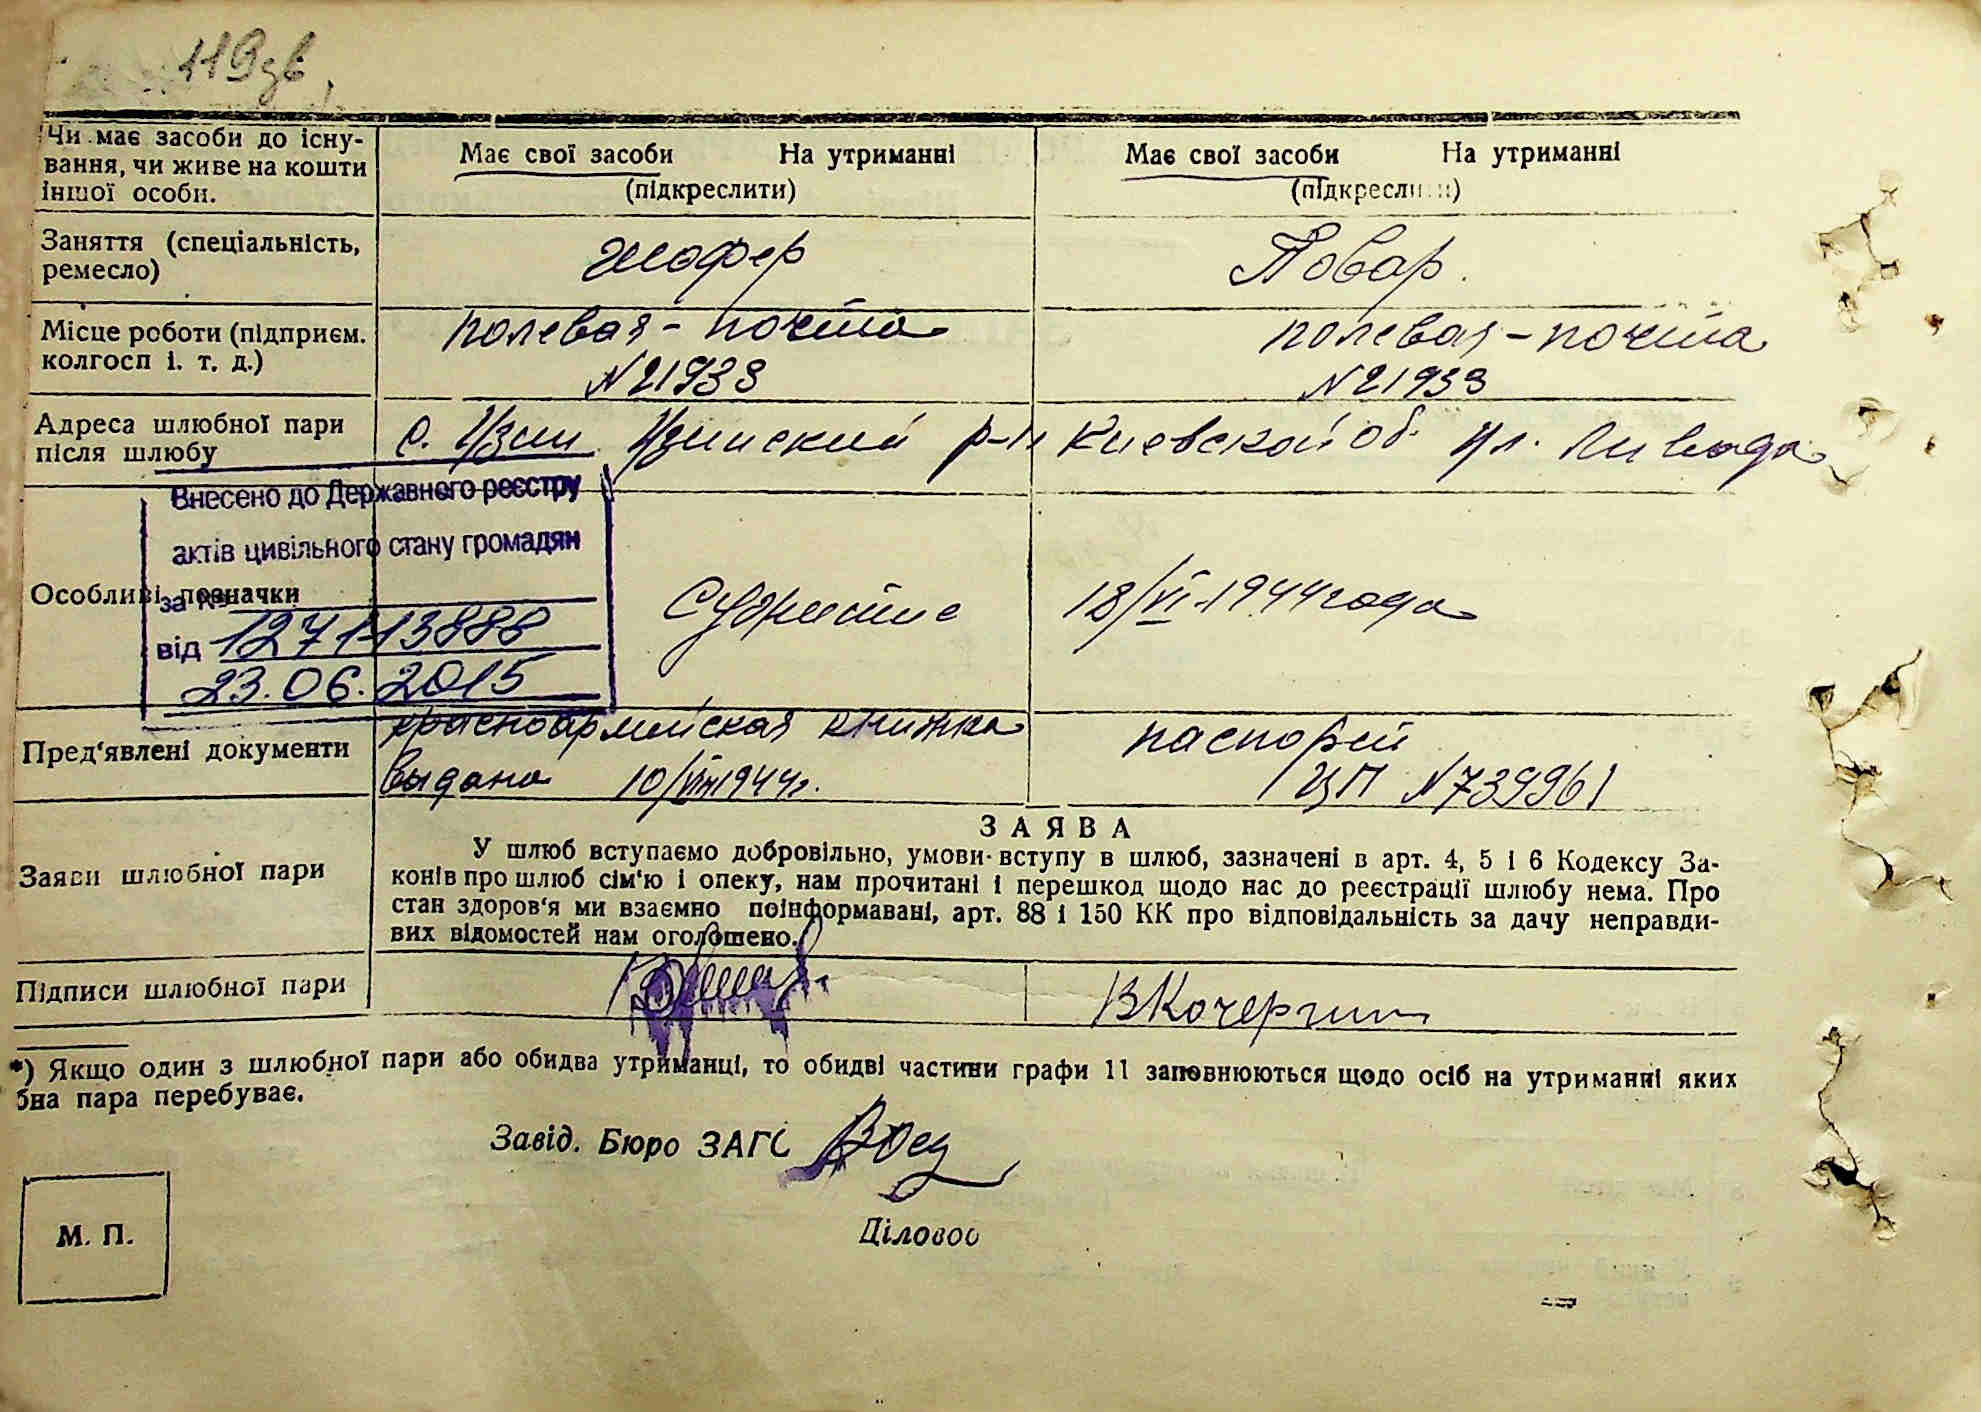 119зв
Чи має засоби до існу-
вання, чи живе на кошти
іншої особи.
Має свої засоби На утриманні
(підкреслити)
Має свої засоби На утриманні
(підкреслити)
Заняття (спеціальність,
ремесло)
шофер
Повар.
Місце роботи (підприєм.
колгосп і. т. д.)
полевая-почта
№21933
полевая-почта
№21933
Адреса шлюбної пари
після шлюбу
с. Узин Узинский р-н Киевской об. ул. Ливада
Особливі позначки
Внесено до Державного реєстру
актів цивільного стану громадян
за №
від 127113888
23.06.2015
18/VI-1944 года
Пред'явлені документи
красноармейская книжка
выдана 10/VIII 1944г.
паспорт
ЦП №739961
Заяви шлюбної пари
ЗАЯВА
У шлюб вступаємо добровільно, умови вступу в шлюб, зазначені в арт. 4, 5 і 6 Кодексу За-
конів про шлюб сім'ю і опеку, нам прочитані і перешкод щодо нас до реєстрації шлюбу нема. Про
стан здоров'я ми взаємно поінформавані, арт. 88 і 150 КК про відповідальність за дачу неправди-
вих відомостей нам оголошено.
Підписи шлюбної пари
ВКочергин
*) Якщо один з шлюбної пари або обидва утриманці, то обидві частини графи 11 заповнюються щодо осіб на утриманні яких
бна пара перебуває.
Завід. Бюро ЗАГС
Діловод
М. П.